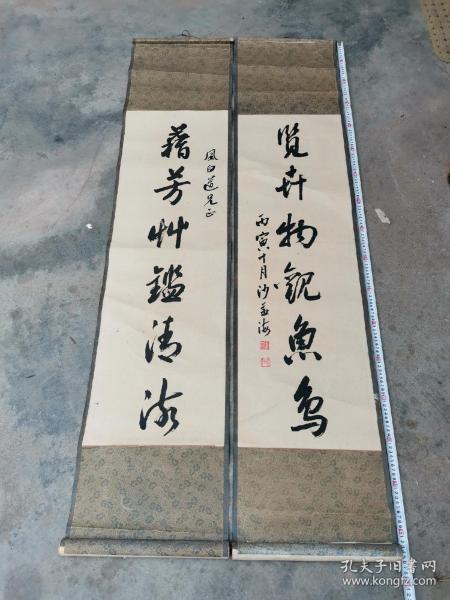 藉芳艸鑑清流
風白道兄正
覽卉物觀魚鳥
丙寅十月沙孟海
孔夫子旧书网
www.kongfz.com